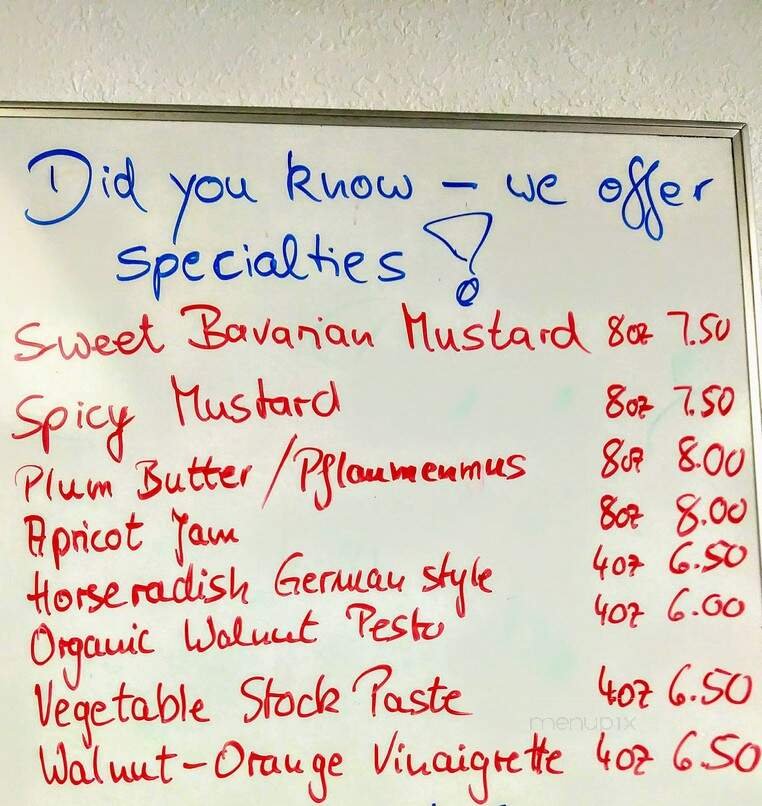 Did you know – we offer
specialties!
Sweet Bavarian Mustard 8oz 7.50
Spicy Mustard 8oz 7.50
Plum Butter / Pflaumenmus 8oz 8.00
Apricot Jam 8oz 8.00
Horseradish German style 4oz 6.50
Organic Walnut Pesto 4oz 6.00
Vegetable Stock Paste 4oz 6.50
menupix
Walnut-Orange Vinaigrette 4oz 6.50